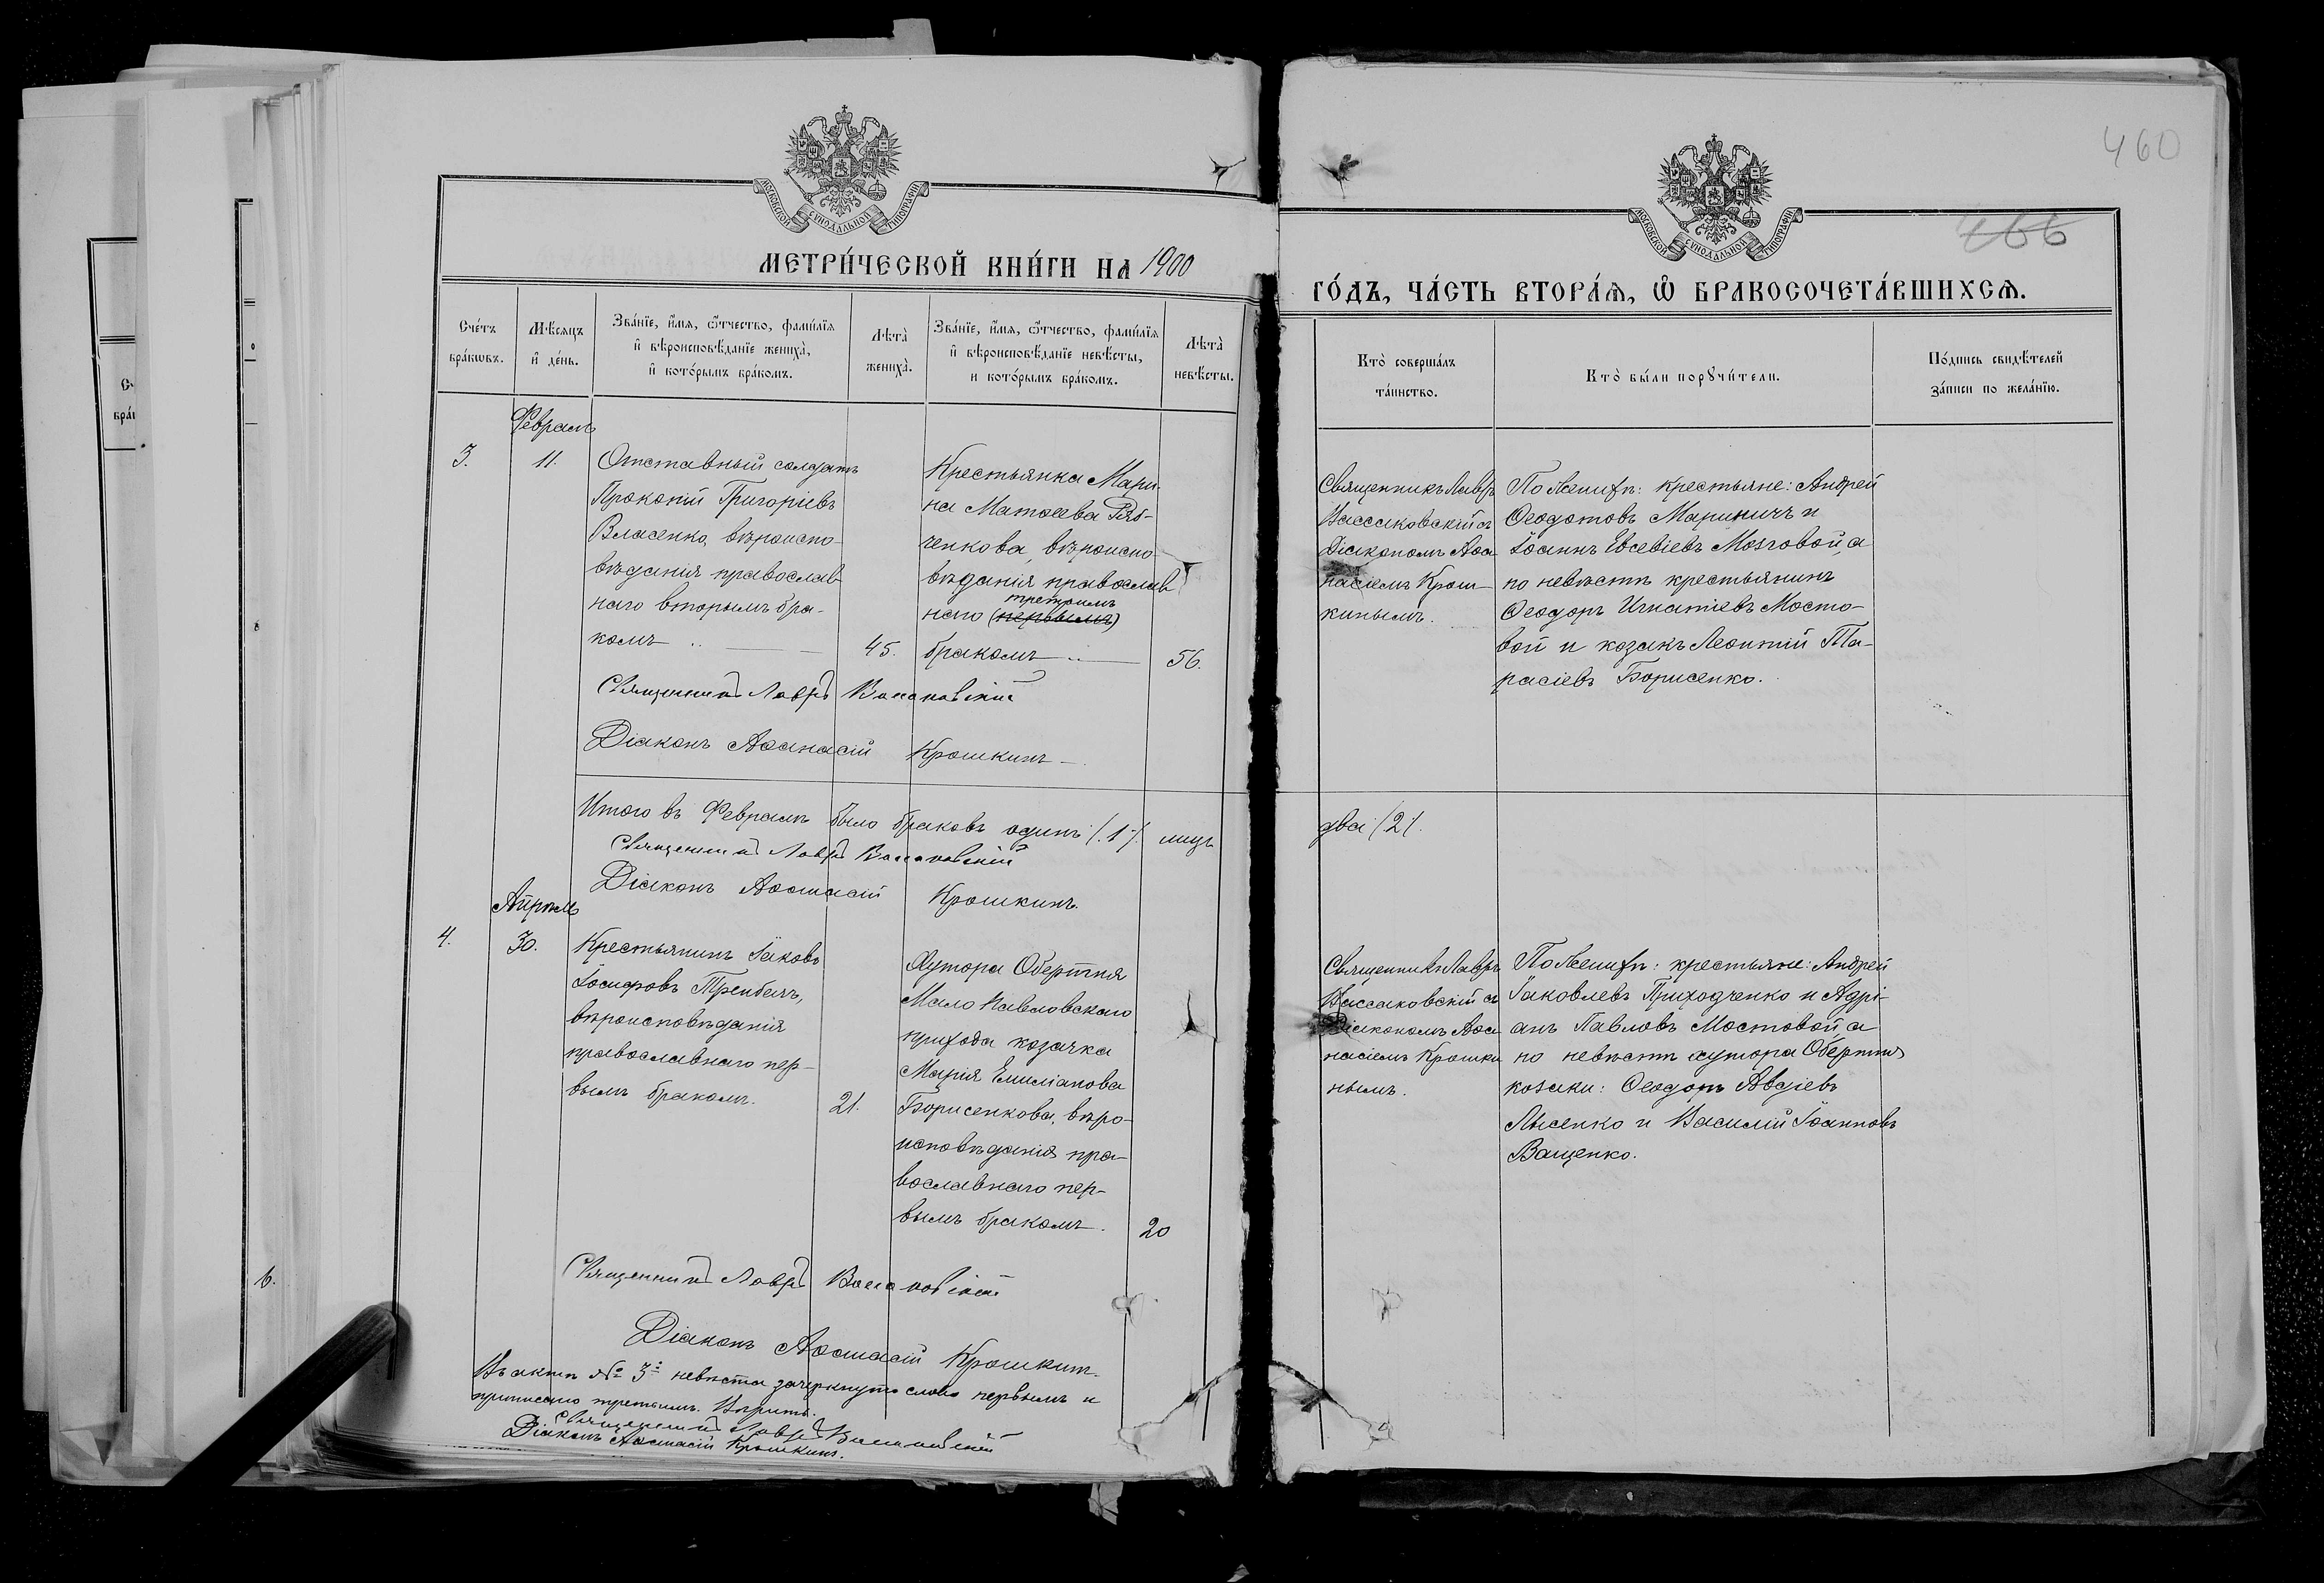 460
466
МОСКОВСКОЙ СѴНОДАЛЬНОЙ ТИПОГРАФІИ
МОСКОВСКОЙ СѴНОДАЛЬНОЙ ТИПОГРАФІИ
МЕТРИ́ЧЕСКОЙ КНИ́ГИ НА 1900
ГО́ДЪ, ЧА́СТЬ ВТОРА́Ѧ, Ѡ҆ БРАКОСОЧЕТА́ВШИХСѦ.
Сче́тъ
бра́кѡвъ.
Мѣ́сяцъ
и҆ де́нь.
Зва́нїе, и҆́мѧ, ѻ҆́тчество, фами́лїѧ
и҆ вѣроисповѣ́данїе жениха̀,
и҆ кото́рымъ бра́комъ.
Лѣта̀
жениха̀.
Зва́нїе, и҆́мѧ, ѻ҆́тчество, фами́лїѧ
и҆ вѣроисповѣ́данїе невѣ́сты,
и кото́рымъ бра́комъ.
Лѣта̀
невѣ́сты.
Кто̀ соверша́лъ
та́инство.
Кто̀ бы́ли порꙋчи́тели.
По́дпись свидѣ́телей
за́писи по жела́нїю.
Февраль
3.
11.
Отставный солдатъ
Прокопій Григоріевъ
Власенко, вѣроиспо-
вѣданія православ-
наго вторымъ бра-
комъ
45.
Крестьянка Мари-
на Матѳеева Ряб-
ченкова, вѣроиспо-
вѣданія православ-
третьимъ
наго (первымъ)
бракомъ
56.
Священникъ Лавръ
Вассаковскій съ
Діакономъ Аѳа
насіемъ Крош-
кинымъ.
По женихѣ: крестьяне: Андрей
Ѳеодотовъ Мариничъ и
Іоаннъ Евсевіевъ Мозговой, а
по невѣстѣ крестьянинъ
Ѳеодоръ Игнатіевъ Мосто-
вой и козакъ Леонтій Та-
расіевъ Борисенко.
Священникъ Лавръ Вассаковскій
Діаконъ Аѳанасій Крошкинъ
Итого въ Февралѣ было браковъ одинъ /.1./ лицъ два /2/.
Священникъ Лавръ Вассаковскій
Діаконъ Аѳанасій Крошкинъ.
Апрѣль
4.
30.
Крестьянинъ Іаковъ
Іосифовъ Трембачъ,
вѣроисповѣданія
православнаго пер-
вымъ бракомъ.
21.
Хутора Обертня
Мало Павловскаго
прихода козачка
Марія Емиліанова
Борисенкова, вѣро-
исповѣданія пра-
вославнаго пер-
вымъ бракомъ.
20
Священникъ Лавръ
Вассаковскій съ
Діакономъ Аѳа
насіемъ Крошки
нымъ.
По женихѣ: крестьяне: Андрей
Іаковлевъ Приходченко и Адрі-
анъ Павловъ Мостовой, а
по невѣстѣ хутора Обертня
козаки: Ѳеодоръ Авдіевъ
Лысенко и Василій Іоанновъ
Ващенко.
Священникъ Лавръ Вассаковскій
Діаконъ Аѳанасій Крошкинъ.
Въ актѣ № 3й невѣста зачеркнуто слово первымъ и
приписано третьимъ. Вѣрить.
Священникъ Лавръ Вассаковскій
Діаконъ Аѳанасій Крошкинъ.
6.